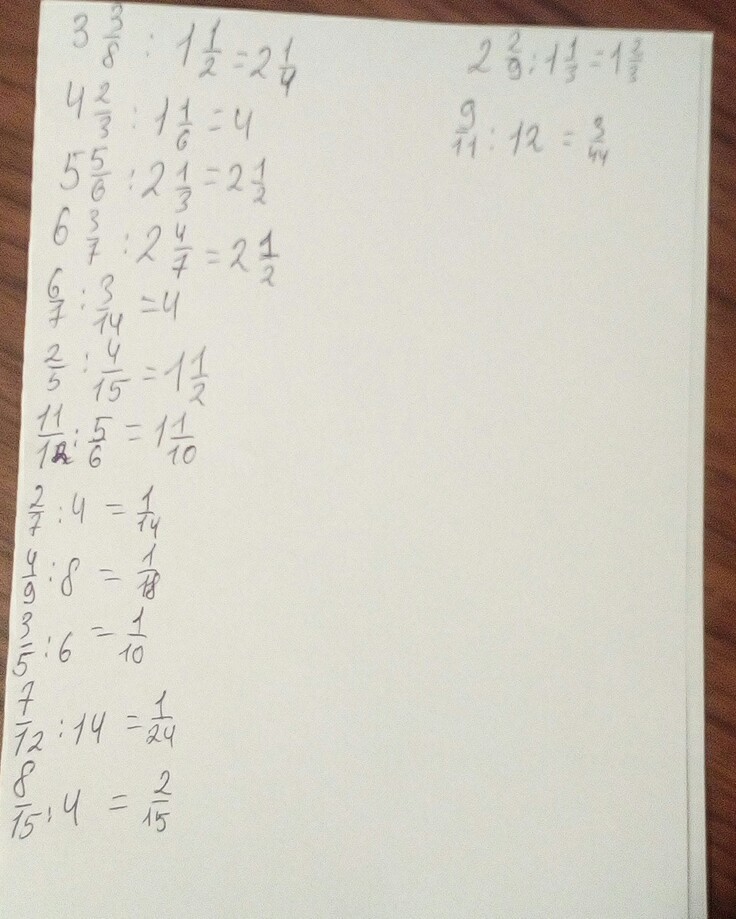 3 3/8 : 1 1/2 = 2 1/4
4 2/3 : 1 1/6 = 4
5 5/6 : 2 1/3 = 2 1/2
6 3/7 : 2 4/7 = 2 1/2
6/7 : 3/14 = 4
2/5 : 4/15 = 1 1/2
11/12 : 5/6 = 1 1/10
2/7 : 4 = 1/14
4/9 : 8 = 1/18
3/5 : 6 = 1/10
7/12 : 14 = 1/24
8/15 : 4 = 2/15
2 2/9 : 1 1/3 = 1 2/3
9/11 : 12 = 3/44